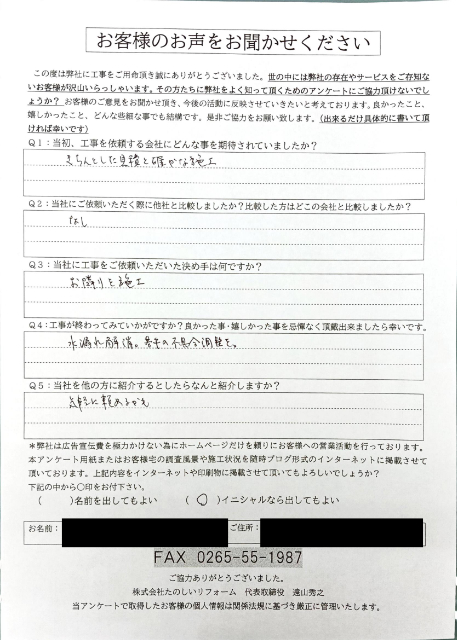 お客様のお声をお聞かせください
この度は弊社に工事をご用命頂き誠にありがとうございました。世の中には弊社の存在やサービスをご存知な
いお客様が沢山いらっしゃいます。その方たちに弊社をよく知って頂くためのアンケートにご協力頂けないでし
ょうか？ お客様のご意見をお聞かせ頂き、今後の活動に反映させていきたいと考えております。良かったこと、
嬉しかったこと、どんな些細な事でも結構です。是非ご協力をお願い致します。（出来るだけ具体的に書いて頂
ければ幸いです）
Ｑ１：当初、工事を依頼する会社にどんな事を期待されていましたか？
きちんとした見積と確かな施工
Ｑ２：当社にご依頼いただく際に他社と比較しましたか？比較した方はどこの会社と比較しましたか？
なし
Ｑ３：当社に工事をご依頼いただいた決め手は何ですか？
お隣りを施工
Ｑ４：工事が終わってみていかがですか？良かった事・嬉しかった事を忌憚なく頂戴出来ましたら幸いです。
水漏れ解消。 の不具合調整も。
Ｑ５：当社を他の方に紹介するとしたらなんと紹介しますか？
気軽に頼めるかも
＊弊社は広告宣伝費を極力かけない為にホームページだけを頼りにお客様への営業活動を行っております。
本アンケート用紙またはお客様宅の調査風景や施工状況を随時ブログ形式のインターネットに掲載させて
頂いております。上記内容をインターネットや印刷物に掲載させて頂いてもよろしいでしょうか？
下記の中から○印をお付下さい。
（　　）名前を出してもよい　　（ ○ ）イニシャルなら出してもよい
お名前： ご住所：
FAX 0265-55-1987
ご協力ありがとうございました。
株式会社たのしいリフォーム　代表取締役　遠山秀之
当アンケートで取得したお客様の個人情報は関係法規に基づき厳正に管理いたします。